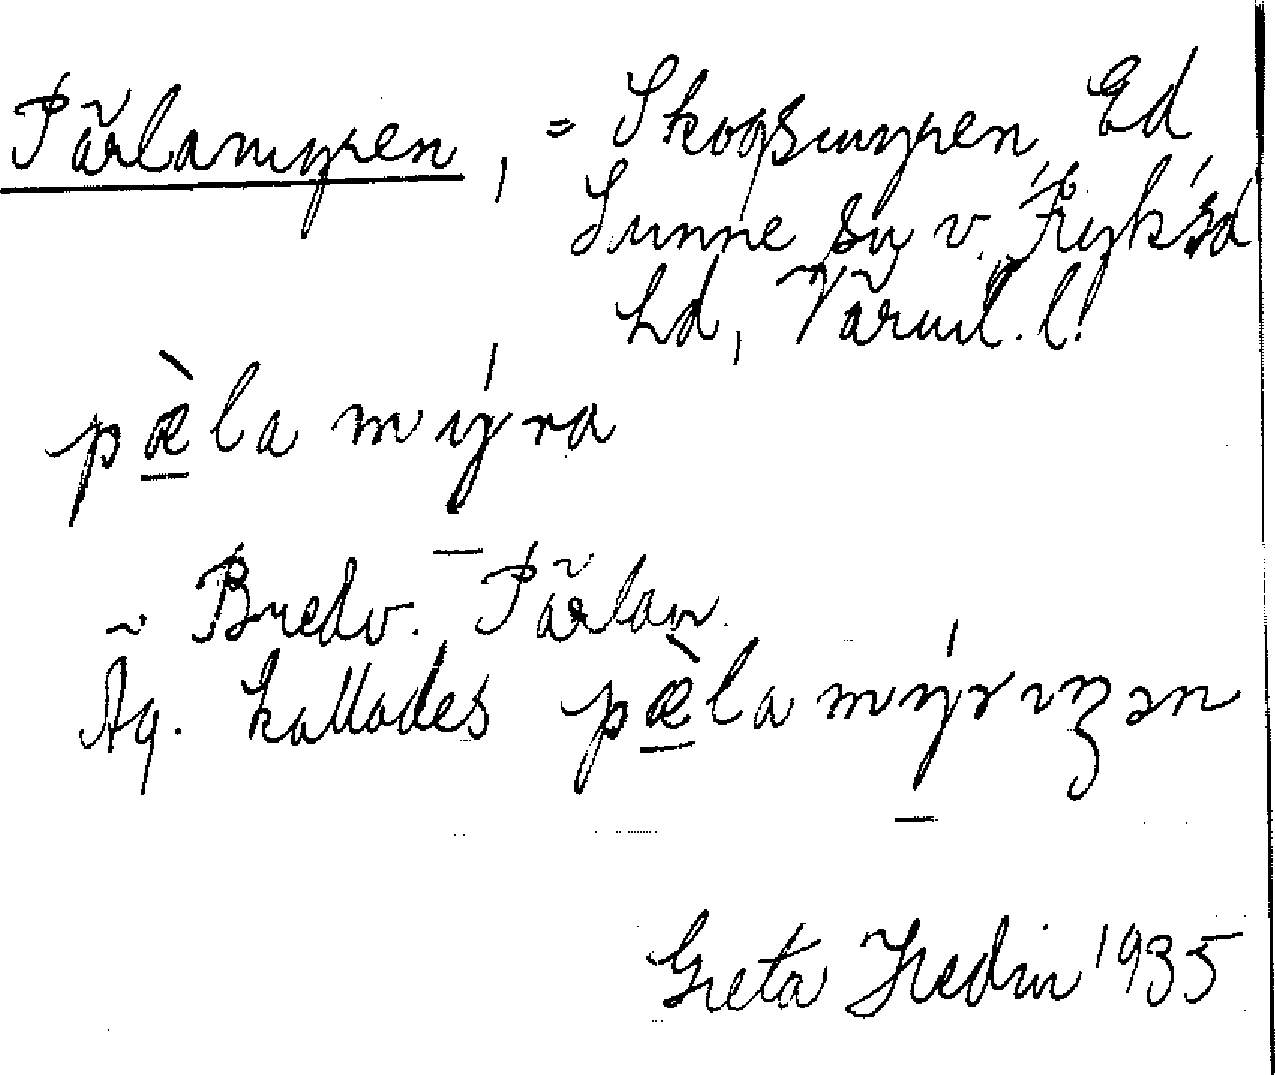 Pärlamyren, = Skogsmyren Ed
Sunne sn v. Fryksd
hd, Värml. l.
pæ̀la mýra
~ Bredv. Pärlan.
Äg. kallades pæ̀la mýrızən
Greta Hedin 1935